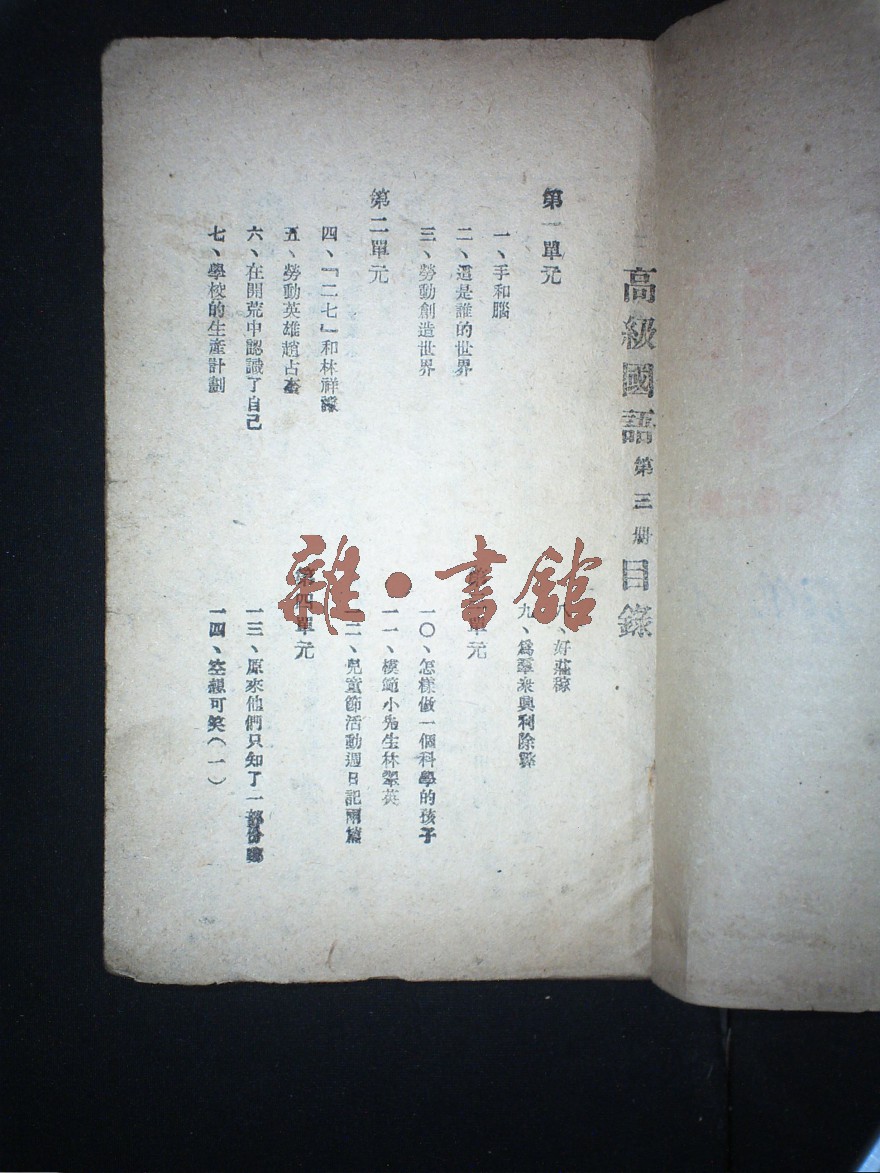 高級國語 第三册 目錄
第一單元
一、手和腦
二、這是誰的世界
三、勞動創造世界
第二單元
四、「二七」和林祥謙
五、勞動英雄趙占奎
六、在開荒中認識了自己
七、學校的生產計劃
、好莊稼
九、爲羣衆興利除弊
單元
一〇、怎樣做一個科學的孩子
一一、模範小先生林翠英
一二、兒童節活動週日記兩篇
第四單元
一三、原來他們只知了一部份
一四、空想可笑（一）
雜·書館